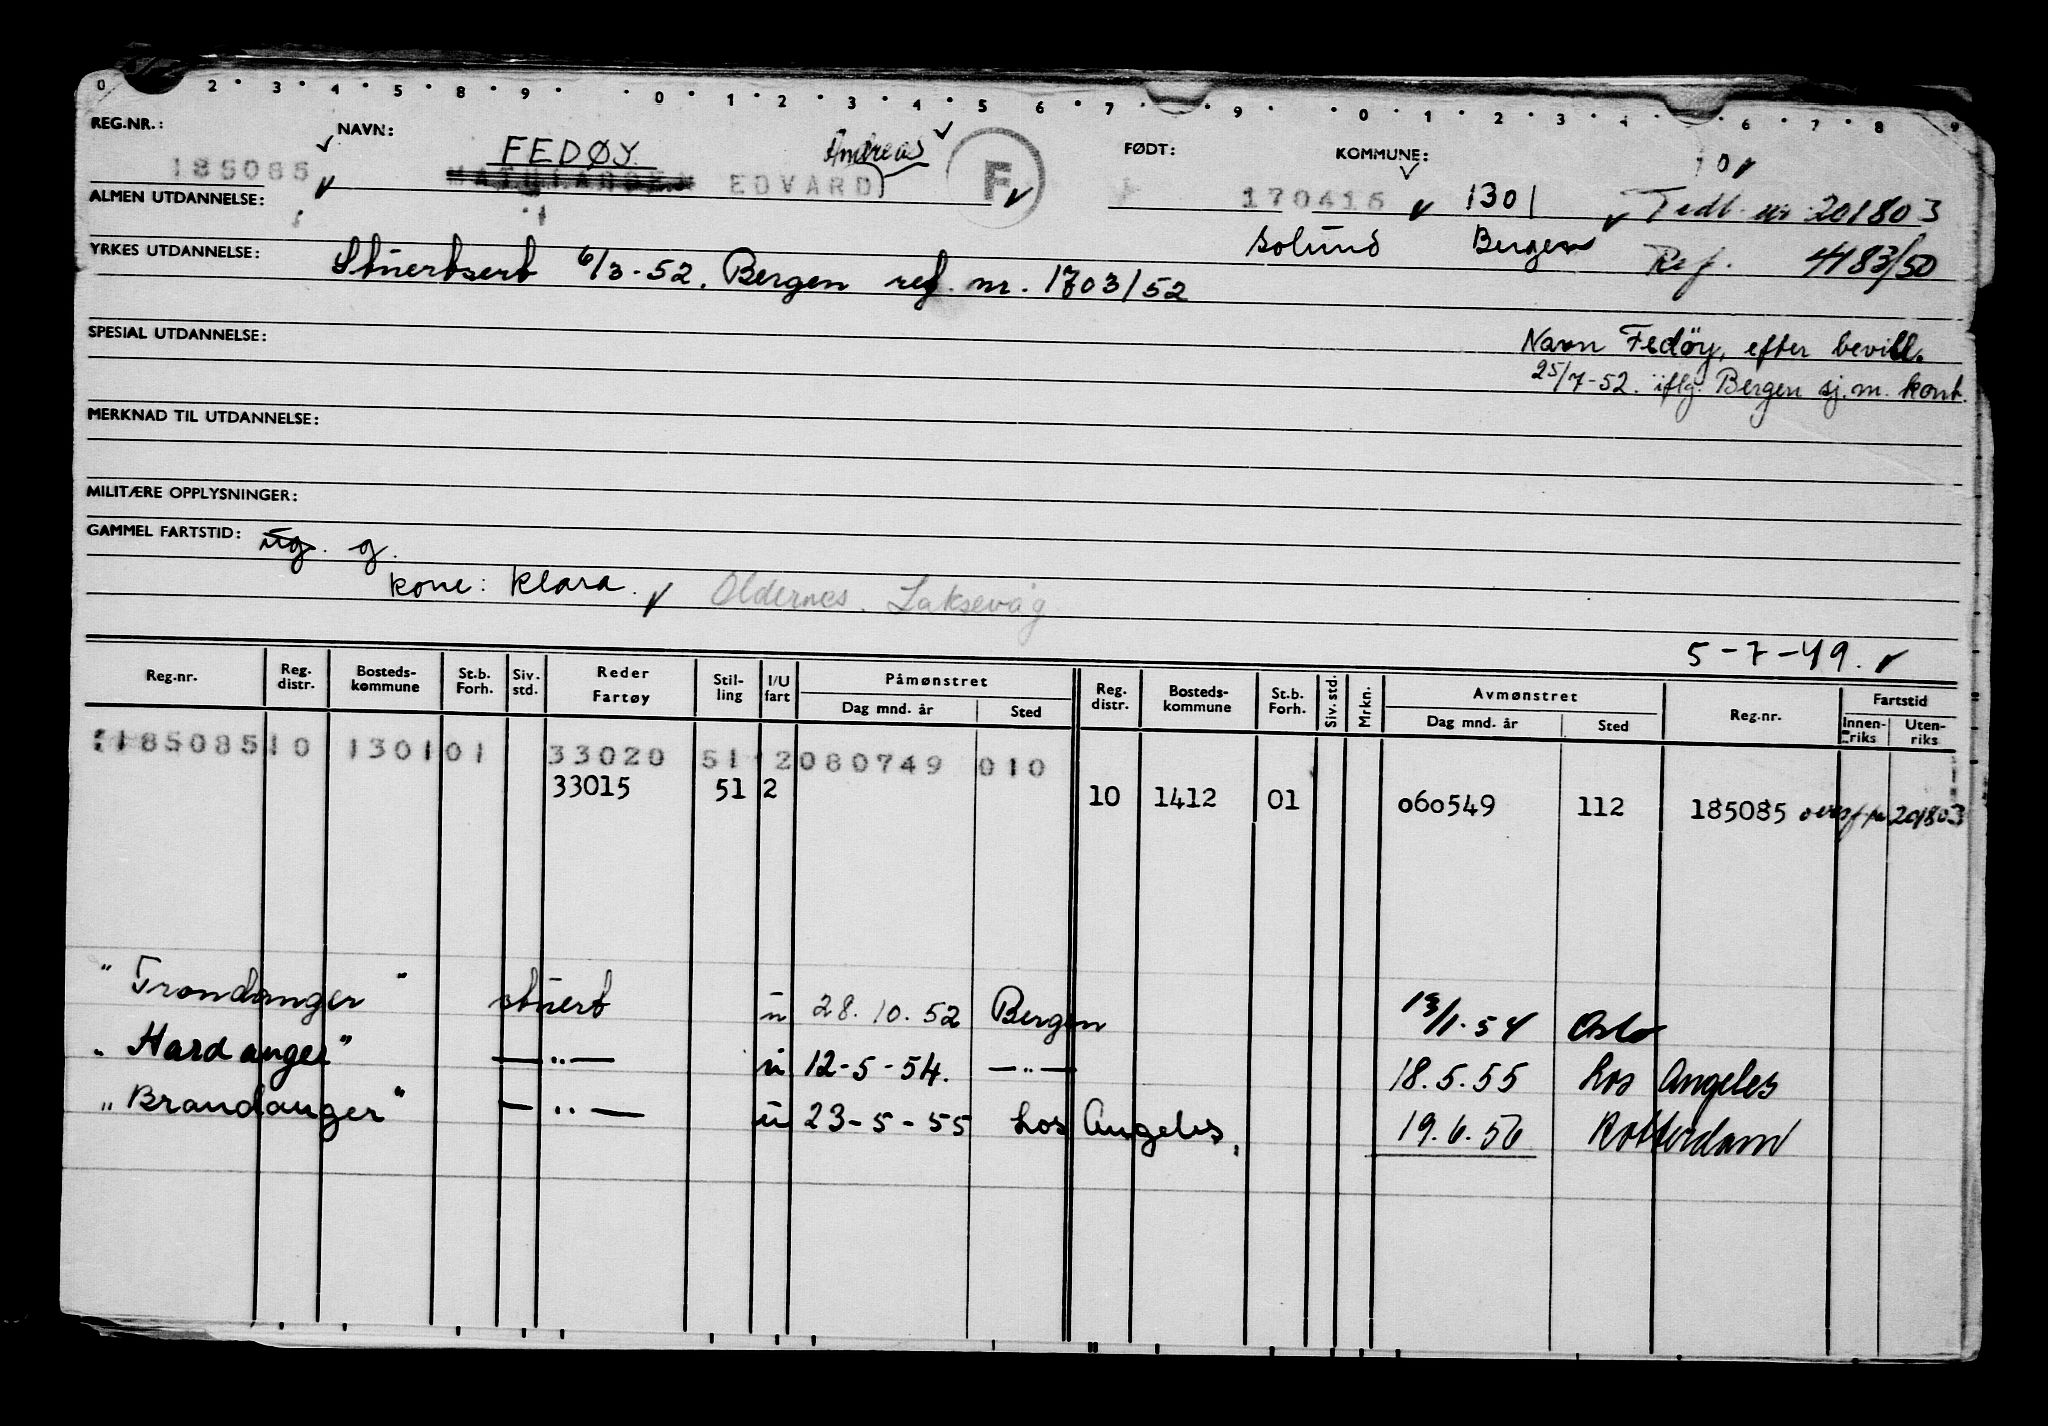 0 2 3 4 5 8 9 0 1 2 3 4 5 6 7 9 0 1 2 3 4 6 7 8 9
REG.NR.: NAVN: FØDT: KOMMUNE:
185085 FEDØY EDVARD Andreas F 170415 1301 Tedl. nr 201803
ALMEN UTDANNELSE:
Solund Bergen Ref. 4183/50
YRKES UTDANNELSE: Stuertsert 6/3-52. Bergen ref. nr. 1703/52
SPESIAL UTDANNELSE: Navn Fedöy, efter bevill.
25/7-52. iflg. Bergen sj. m. kont.
MERKNAD TIL UTDANNELSE:
MILITÆRE OPPLYSNINGER:
GAMMEL FARTSTID: ug. g.
kone: Klara. Oldernes. Laksevåg
5-7-49.
Reg.nr. Reg. distr. Bosteds-kommune St.b. Forh. Siv. std. Reder Fartøy Stil-ling I/U fart Påmønstret Dag mnd. år Sted Reg. distr. Bosteds-kommune St.b. Forh. Siv. std. Mrkn. Avmønstret Dag mnd. år Sted Reg.nr. Fartstid Innen-riks Uten-riks
185085 10 1301 01 33020 51 2 080749 010
33015 51 2 10 1412 01 060549 112 185085 overf. fra 201803
"Trondanger" stuert u 28.10.52 Bergen 13/1.54 Oslo
"Hardanger" —"— u 12-5-54. —"— 18.5.55 Los Angeles
"Brandanger" —"— u 23-5-55 Los Angeles. 19.6.56 Rotterdam